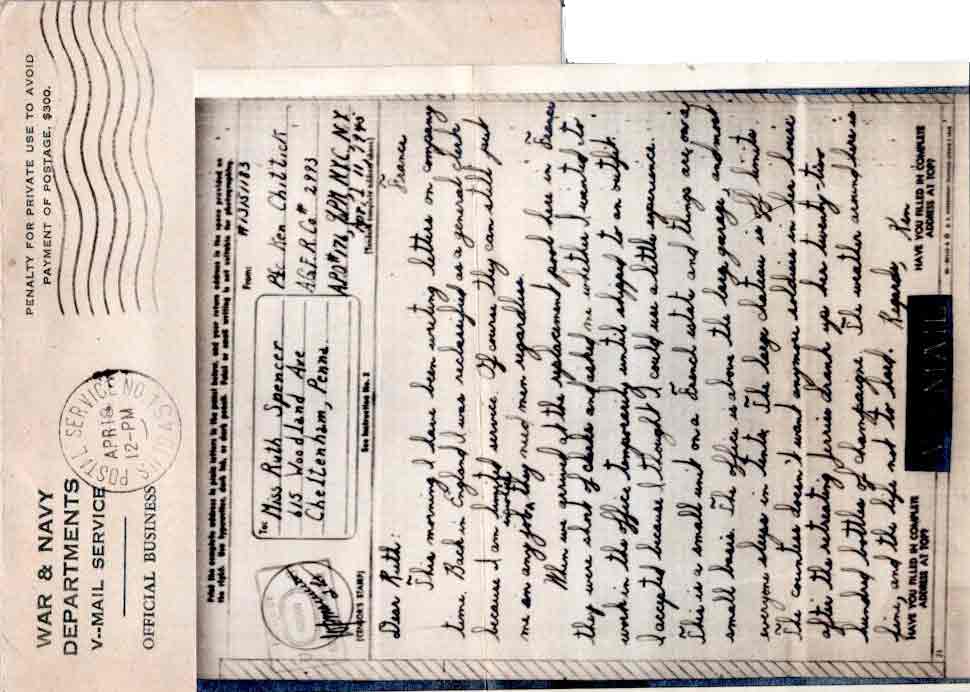 WAR & NAVY
DEPARTMENTS
V-MAIL SERVICE
OFFICIAL BUSINESS
U.S. POSTAL SERVICE NO.
APR 18
12-PM
PENALTY FOR PRIVATE USE TO AVOID
PAYMENT OF POSTAGE, $300.
Print the complete address in plain letters in the panel below, and your return address in the space provided on
the right. Use typewriter, dark ink, or dark pencil. Faint or small writing is not suitable for photographing.
(CENSOR'S STAMP)
To: Miss Ruth Spencer
615 Woodland Ave
Cheltenham, Penna.
See Instruction No. 2
From:
Pfc Ken Chittick
A.G.F.R. Co # 293
APO # 176, % PM, NYC, NY
France
Dear Ruth:
This morning I have been writing letters on company
time. Back in England I was reclassified as a general clerk
because I am limited service. Of course they can still put
me on any job they need men regardless.
When we arrived at the replacement pool here in France
they were short of clerks and asked me whether I wanted to
work in the office temporarily until shipped to an outfit.
I accepted because I thought I could use a little experience.
This is a small unit on a French estate and things are on a
small basis. The office is above the large garage, and most
everyone sleeps in tents. The large chateau is off limits
The countess doesn't want anymore soldiers in her house
after the retreating jerries drank up her twenty-two
hundred bottles of champagne. The weather around here is
fine, and the life not to hard. Regards, Ken
HAVE YOU FILLED IN COMPLETE
ADDRESS AT TOP?
V-MAIL
HAVE YOU FILLED IN COMPLETE
ADDRESS AT TOP?